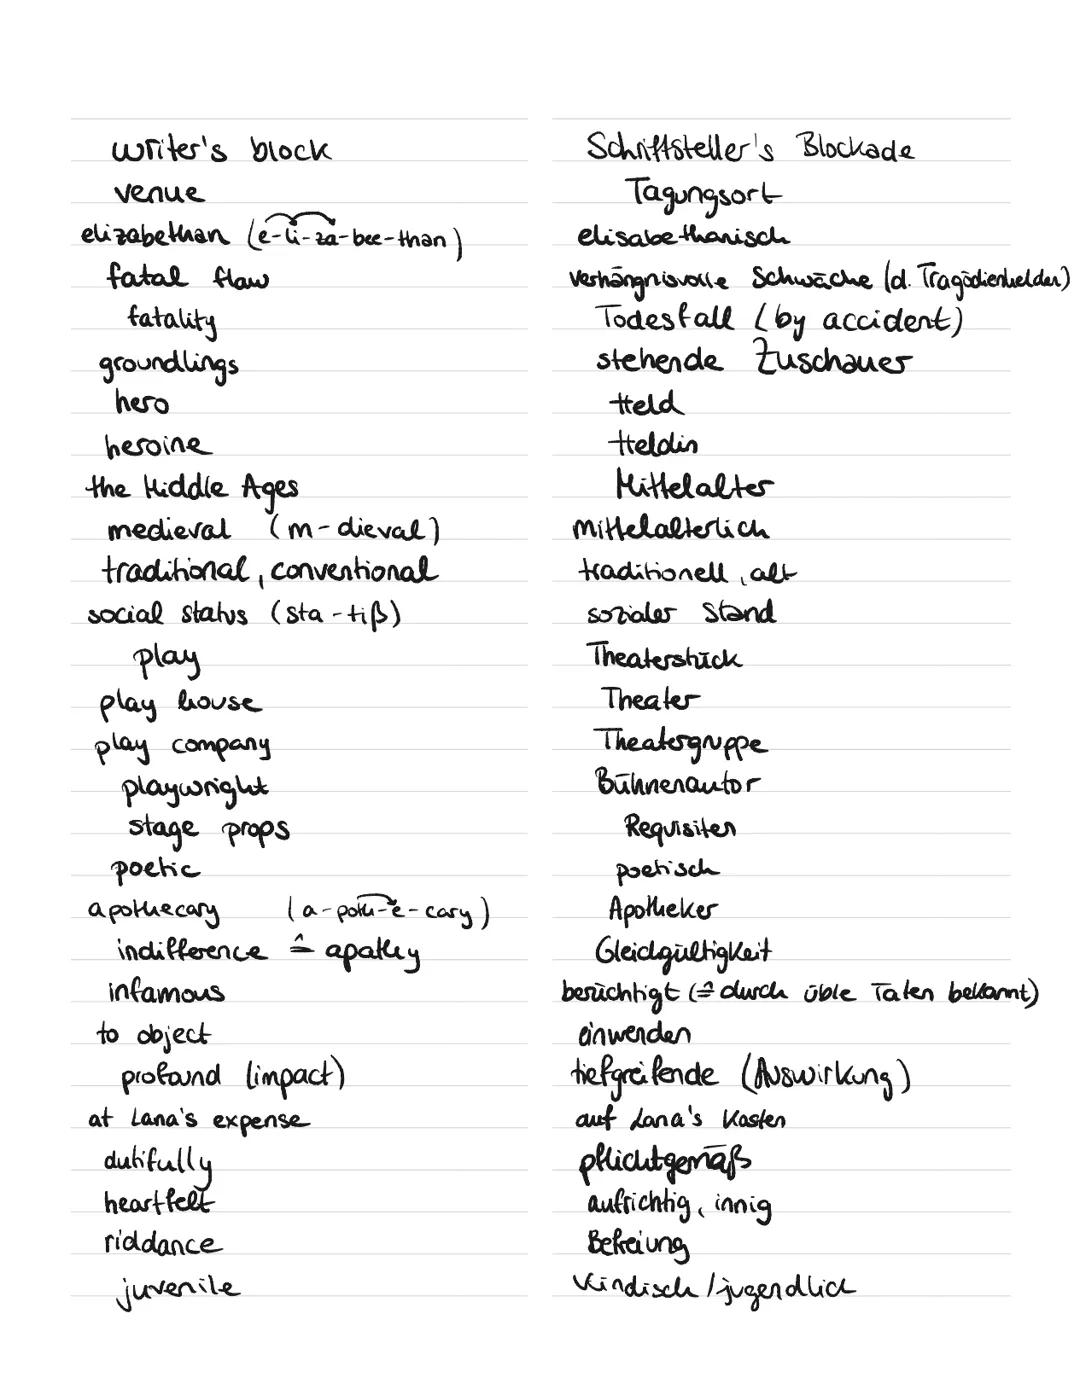 writer's block Schriftsteller's Blockade
venue Tagungsort
elizabethan (e-li-za-bee-than) elisabethanisch
fatal flaw verhängnisvolle Schwäche (d. Tragödienhelden)
fatality Todesfall (by accident)
groundlings stehende Zuschauer
hero Held
heroine Heldin
the Middle Ages Mittelalter
medieval (m-dieval) mittelalterlich
traditional, conventional traditionell, alt
social status (sta-tiß) sozialer Stand
play Theaterstück
play house Theater
play company Theatergruppe
playwright Bühnenautor
stage props Requisiten
poetic poetisch
apothecary (a-poth-e-cary) Apotheker
indifference ≙ apathy Gleichgültigkeit
infamous berüchtigt (≙ durch üble Taten bekannt)
to object einwenden
profound (impact) tiefgreifende (Auswirkung)
at Lana's expense auf Lana's Kosten
dutifully pflichtgemäß
heartfelt aufrichtig, innig
riddance Befreiung
juvenile kindisch/jugendlich